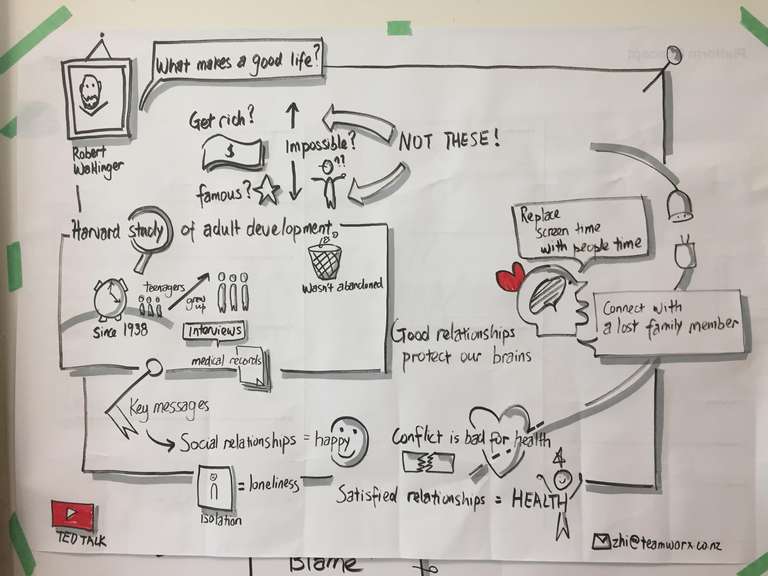 What makes a good life?
Get rich?
$
Impossible?
??
NOT THESE!
famous?
Robert
Waldinger
Harvard study of adult development
Wasn't abandoned
teenagers
grew
up
Since 1938
Interviews
medical records
Replace
screen time
with people time
Connect with
a lost family member
Good relationships
protect our brains
Key messages
Social relationships = happy
Conflict is bad for health
= loneliness
isolation
Satisfied relationships = HEALTH
TED TALK
zhi@teamworx.co.nz
Blame